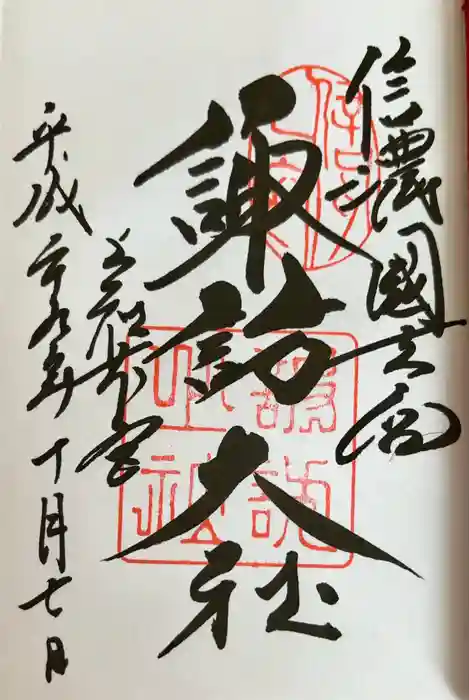 信濃國一之宮
諏訪大社
上社本宮
平成二十九年十月七日